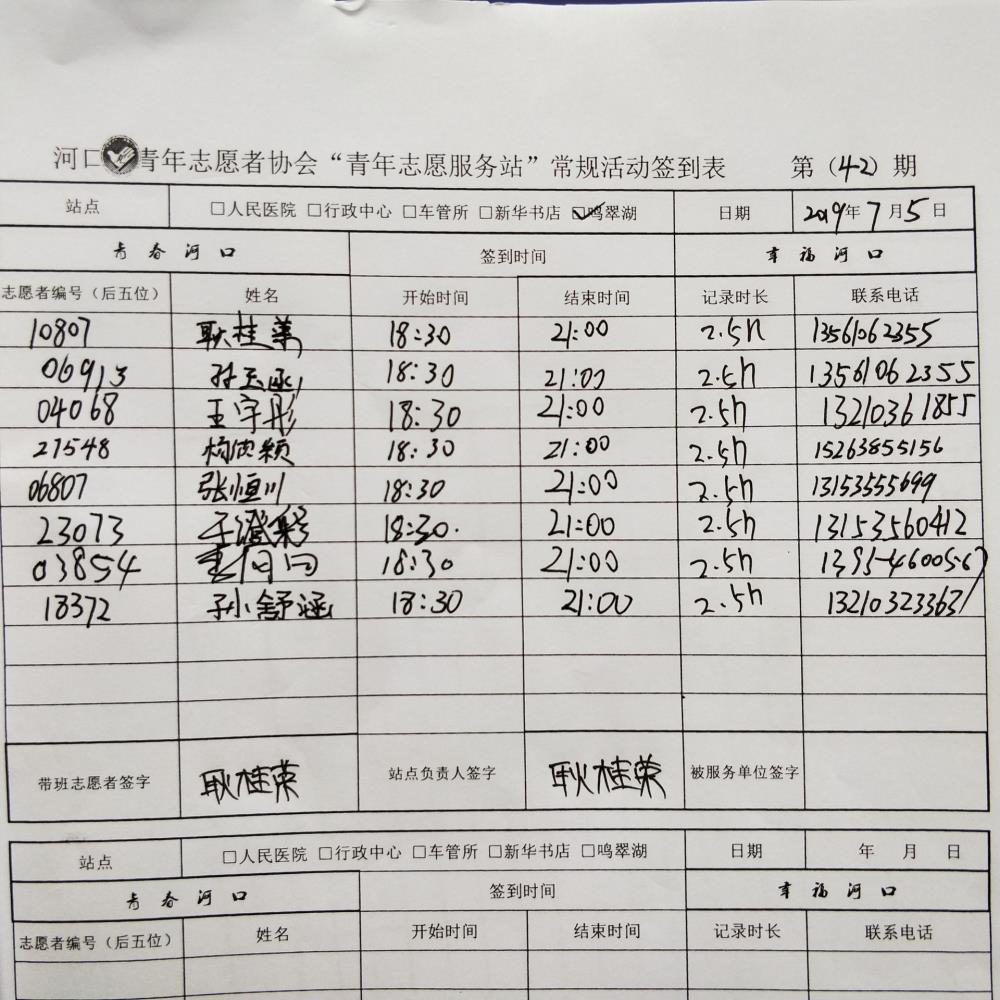 河口青年志愿者协会“青年志愿服务站”常规活动签到表 第（42）期
站点 □人民医院 □行政中心 □车管所 □新华书店 ☑鸣翠湖 日期 2019年7月5日
青春河口 签到时间 幸福河口
志愿者编号（后五位） 姓名 开始时间 结束时间 记录时长 联系电话
10807 耿桂荣 18:30 21:00 2.5h 13561062355
06913 孙玉涵 18:30 21:00 2.5h 13561062355
04068 王宇彤 18:30 21:00 2.5h 13210361855
27548 杨欣颖 18:30 21:00 2.5h 15263855156
06807 张恒川 18:30 21:00 2.5h 13153555699
23073 18:30. 21:00 2.5h 13153560412
03854 18:30 21:00 2.5h
18372 孙舒涵 18:30 21:00 2.5h 13210323363
带班志愿者签字 耿桂荣 站点负责人签字 耿桂荣 被服务单位签字
站点 □人民医院 □行政中心 □车管所 □新华书店 □鸣翠湖 日期 年 月 日
青春河口 签到时间 幸福河口
志愿者编号（后五位） 姓名 开始时间 结束时间 记录时长 联系电话